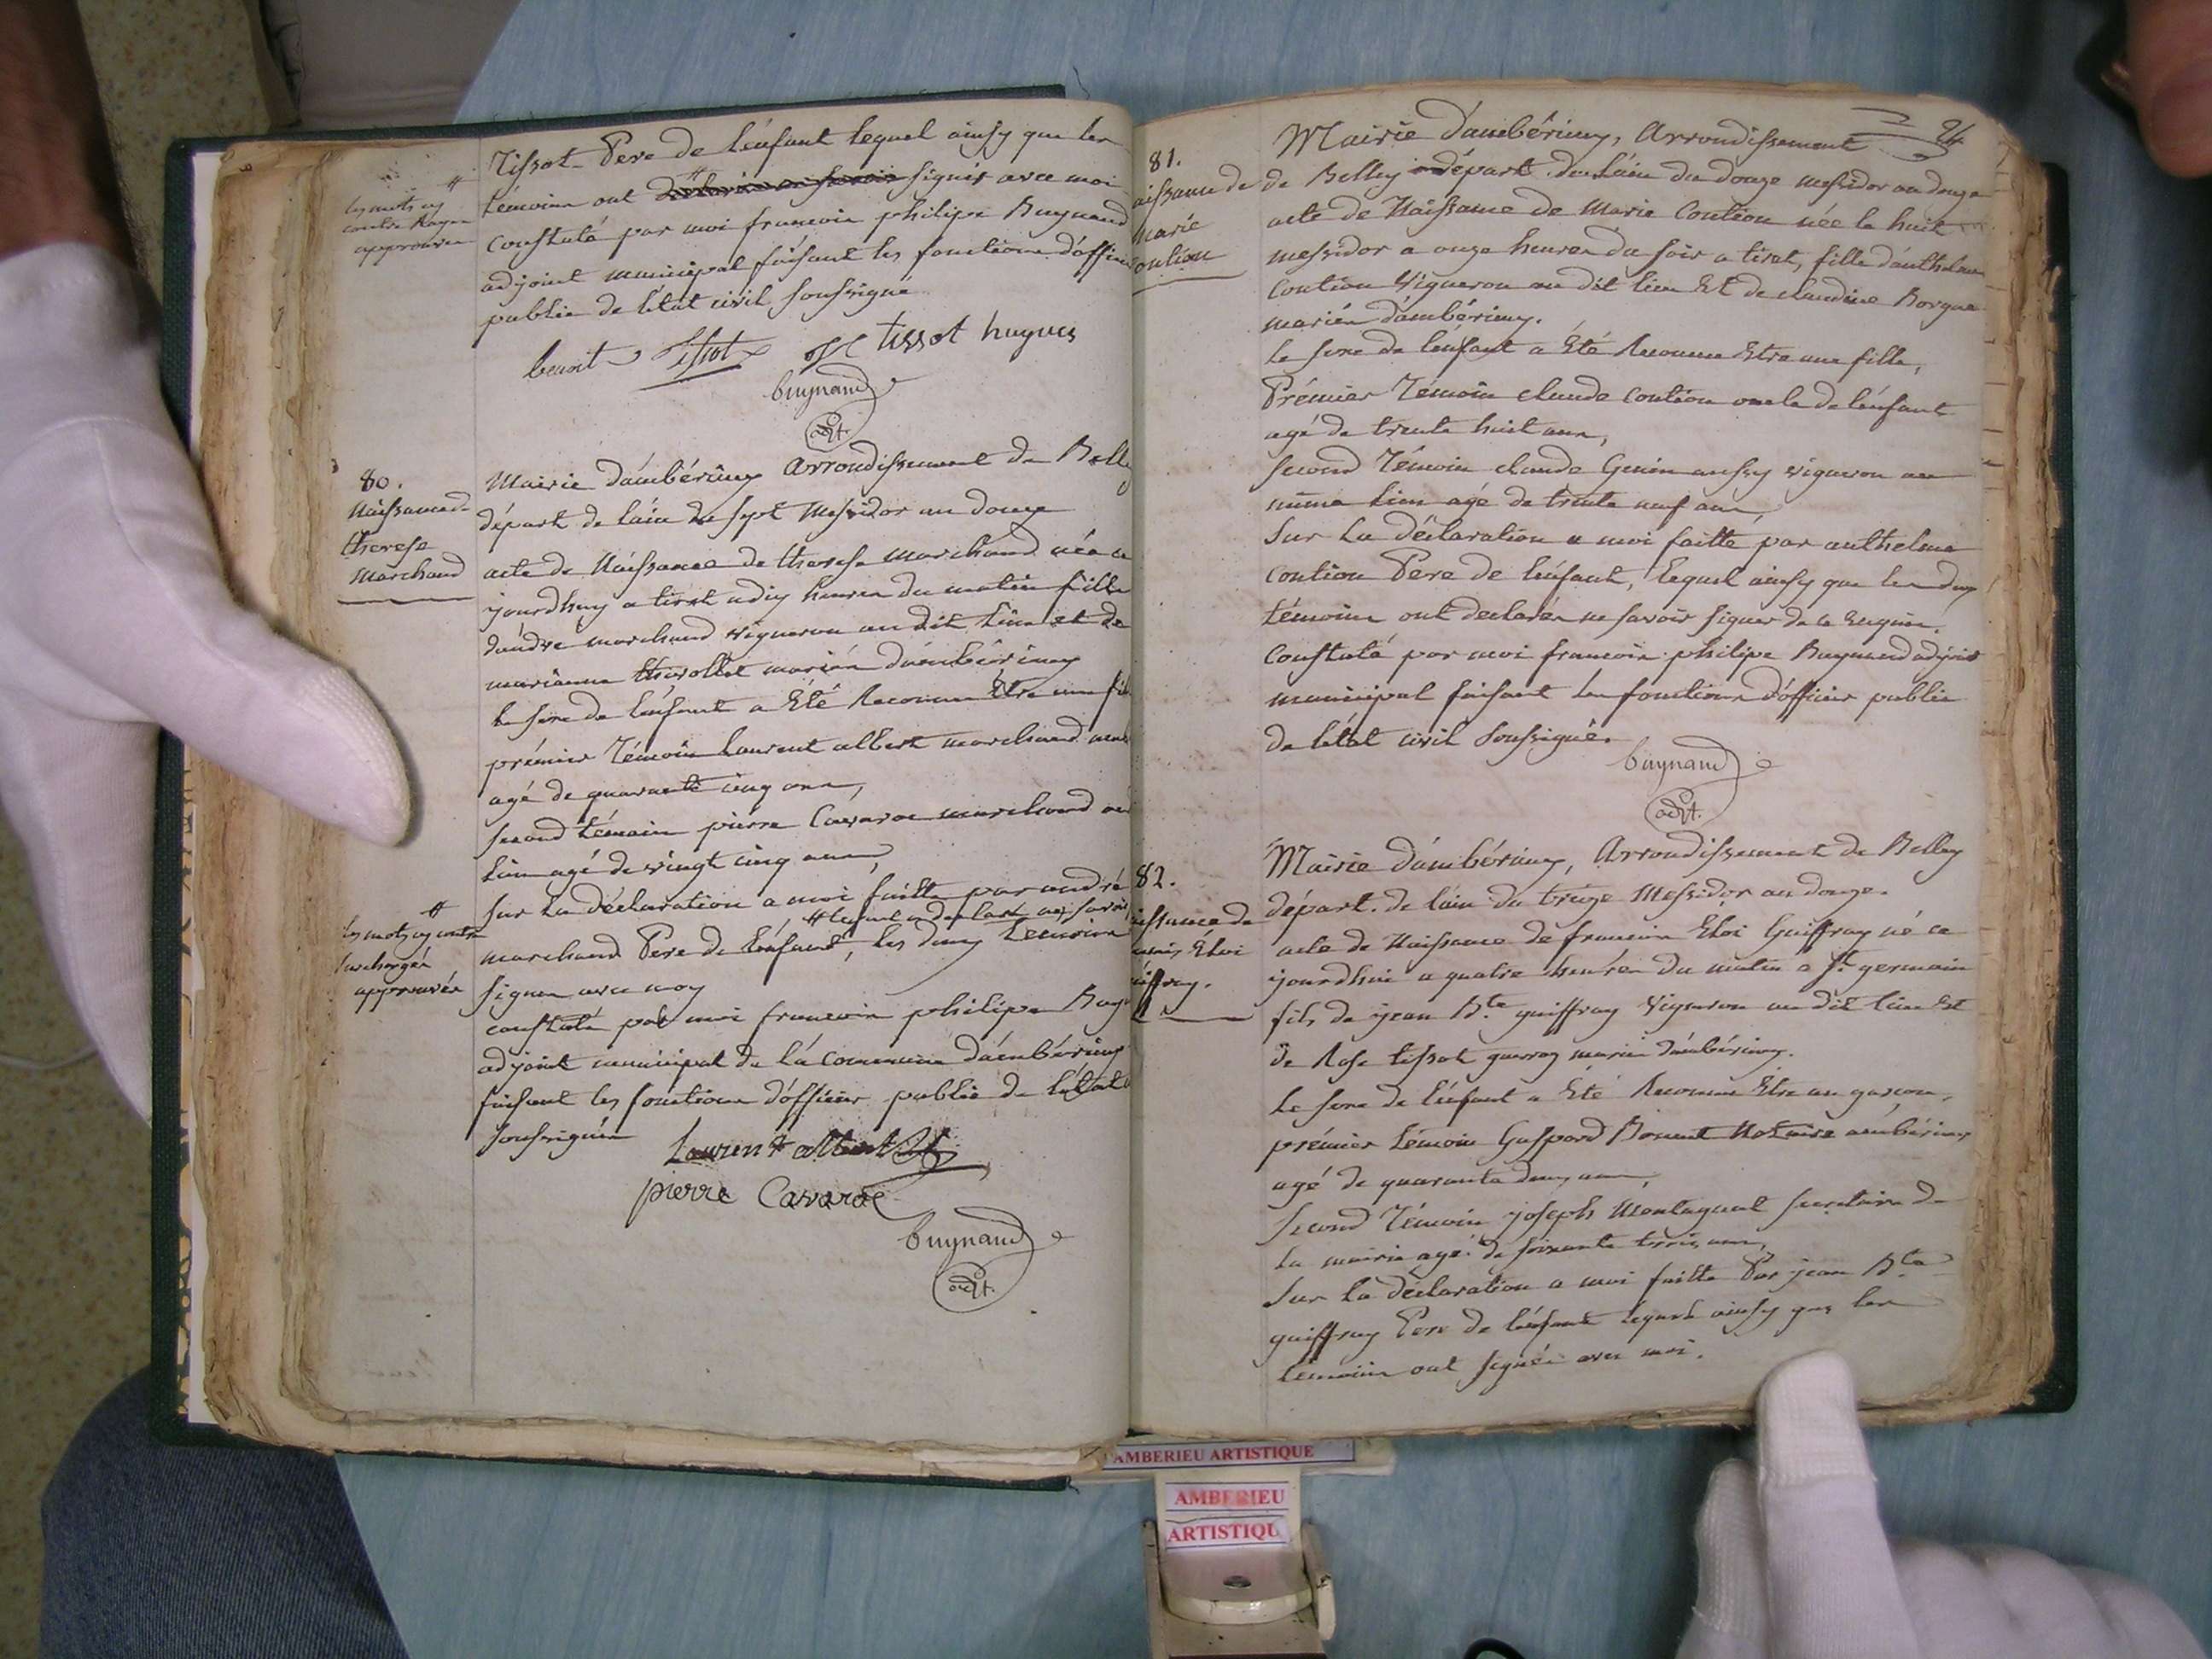 Tissot Pere de l'énfant lequel ainsy que les
témoins ont signés avec moi
les mots cy
contre Rayés
approuvés
Constaté par moi francois philipe Buynand
adjoint municipal faisant les fonctions d'offici
public de létat civil soussigné
benoit Tissot tissot hugues
buynand
adjt.
80.
Naissance de
therese
Marchand
Mairie d'ambérieuy Arrondissement de Belle
départ de láin du sept Messidor an douze
acte de Naissance de therese marchand née ce
jourdhuy a tiret a dix heures du matin fille
dándre marchand vigneron au dit lieu et de
marianne therollet mariés dámbérieuy
le sexe de lénfant a Eté Reconnu Etre une fil
prémier Témoin laurent albert marchand
agé de quarante cinq ans,
second témoin pierre Cavaroc marchand
lieu agé de vingt cinq ans,
sur la déclaration a moi faitte par andré
# lequel a declaré ne savoir
marchand Pere de lénfant, les deux témoins
#
les mots cy contre
surchargés
approuvés
signer avec moy
constaté par moi francois philipe Buy
adjoint municipal de la commune dámbérieuy
faisant les fonctions d'officier public de létat
soussignés
Laurent albert
pierre Cavaroc
buynand
adjt.
24
Mairie d'ambérieuy, Arrondissement
81.
aissance de
marie
ontion
de Belley départ. de láin du douze messidor an douze
acte de Naissance de Marie Contion née le huit
messidor a onze heures du soir a tiret, fille d'anthelme
Contion Vigneron au dit lieu Et de claudine Borgne
mariés d'ambérieuy.
le sexe de lénfant a Eté Reconnu Etre une fille,
Prémier Témoin claude Contion oncle de lénfant
agé de trente huit ans,
second Témoin claude Genin aussy vigneron au
même lieu agé de trente neuf ans,
Sur la déclaration a moi faitte par anthelme
Contion Pere de lénfant, lequel ainsy que les deux
témoins ont declarés ne savoir signer de ce Enquis.
Constaté par moi francois philipe Buynand adjoint
municipal faisant les fonctions d'officier public
de létat civil Soussigné.
buynand
adjt.
82.
issance de
ancois Éloi
iffray.
Mairie d'ambérieuy, Arrondissement de Belley
départ. de láin du treize Messidor an douze.
acte de Naissance de francois Eloi Guiffray né ce
jourdhui a quatre heures du matin a St germain
fils de jean Bte guiffray Vigneron au dit lieu Et
de Rose tissot guerray mariés dámbérieuy.
le sexe de lénfant a Eté Reconnu Etre un garcon,
prémier témoin Gaspard Bonnet Notaire ambérieuy
agé de quarante deux ans,
second Témoin joseph Montagnat secretaire de
la mairie agé de soixante trois ans,
Sur la déclaration a moi faitte Par jean Bte
guiffray Pere de lénfant lequel ainsy que les
témoins ont signés avec moi.
AMBERIEU ARTISTIQUE
AMBERIEU
ARTISTIQU